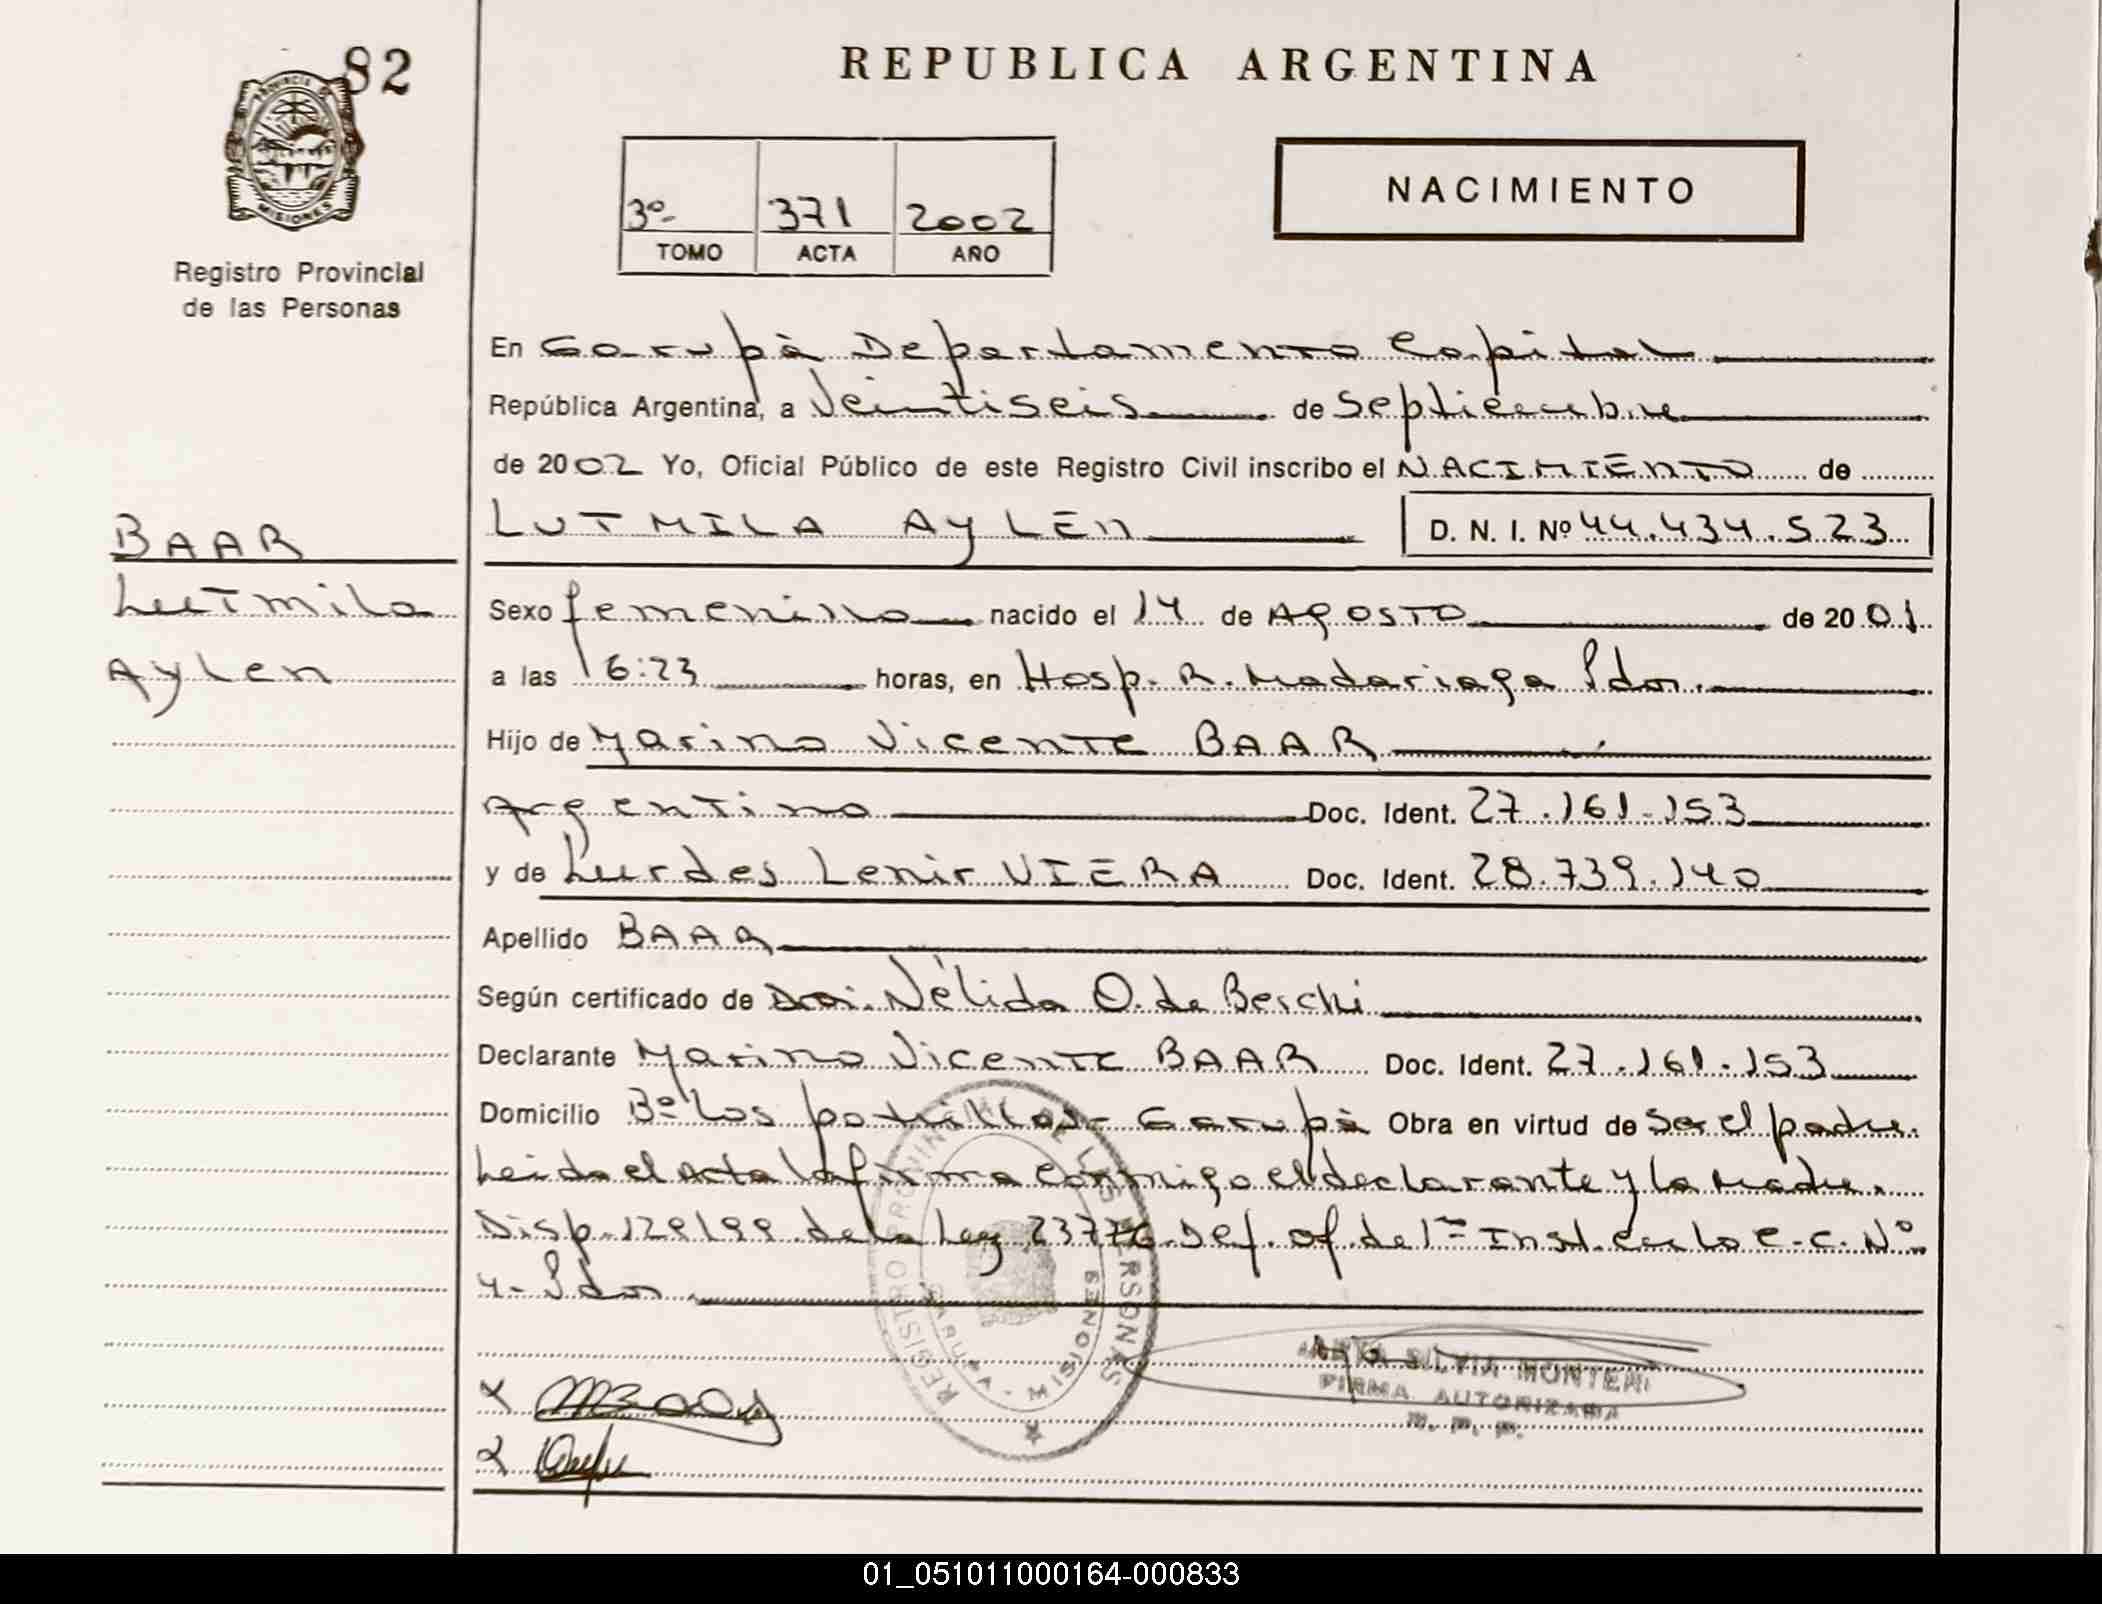 82
REPUBLICA ARGENTINA
PROVINCIA DE
MISIONES
Registro Provincial
de las Personas
3º- 371 2002
TOMO ACTA AÑO
NACIMIENTO
En Garupà Departamento Capital
República Argentina, a Veintiseis de Septiembre
de 2002 Yo, Oficial Público de este Registro Civil inscribo el NACIMIENTO de
LUTMILA AYLEN D. N. I. Nº 44.434.523
BAAR
Lutmila
Aylen
Sexo femenino nacido el 14 de AGOSTO de 2001
a las 16:23 horas, en Hosp. R. Madariaga Pdas.
Hijo de Marino Vicente BAAR
Argentino Doc. Ident. 27.161.153
y de Lurdes Lenir VIERA Doc. Ident. 28.739.140
Apellido BAAR
Según certificado de Nélida O. de Berchi
Declarante Marino Vicente BAAR Doc. Ident. 27.161.153
Domicilio Bº Los potrillos - Garupà Obra en virtud de ser el padre.
Leida el acta la firma conmigo el declarante y la madre.
Disp. 129/99 de la Ley 23776 Def. of. de 1ª Inst. en lo C. C. Nº
4 - Pdas.
REGISTRO PROVINCIAL DE LAS PERSONAS
GARUPA - MISIONES
SILVIA MONTENE
FIRMA AUTORIZADA
01_051011000164-000833